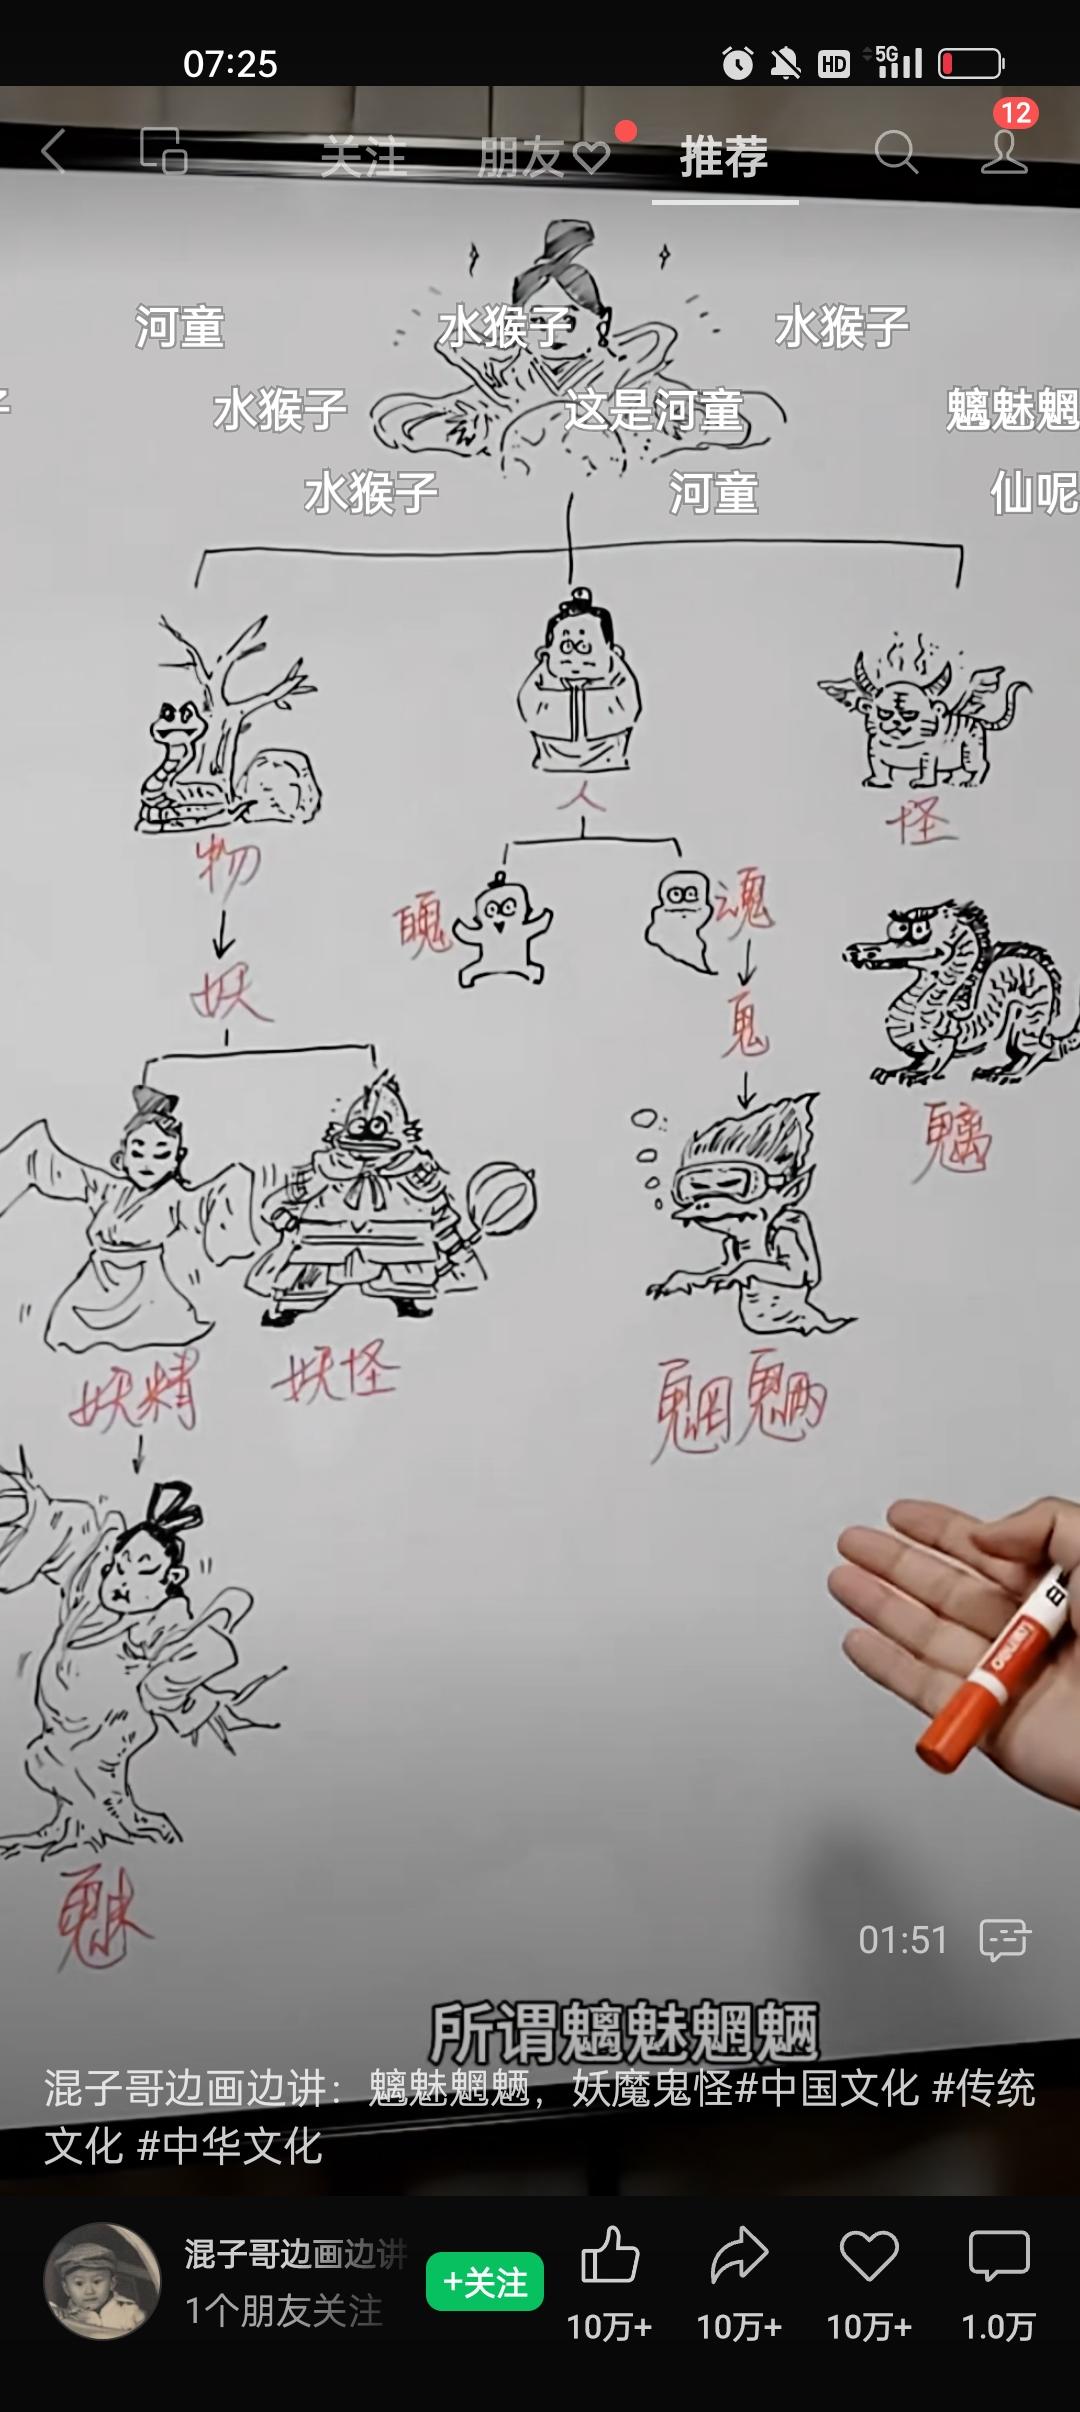 07:25
HD
5G
12
关注
朋友
推荐
河童
水猴子
水猴子
水猴子
这是河童
魑魅魍
水猴子
河童
仙呢
人
怪
物
魄
魂
妖
鬼
魑
妖精
妖怪
魍魉
魅
deli
01:51
所谓魑魅魍魉
混子哥边画边讲：魑魅魍魉，妖魔鬼怪#中国文化 #传统
文化 #中华文化
混子哥边画边讲
1个朋友关注
+关注
10万+
10万+
10万+
1.0万